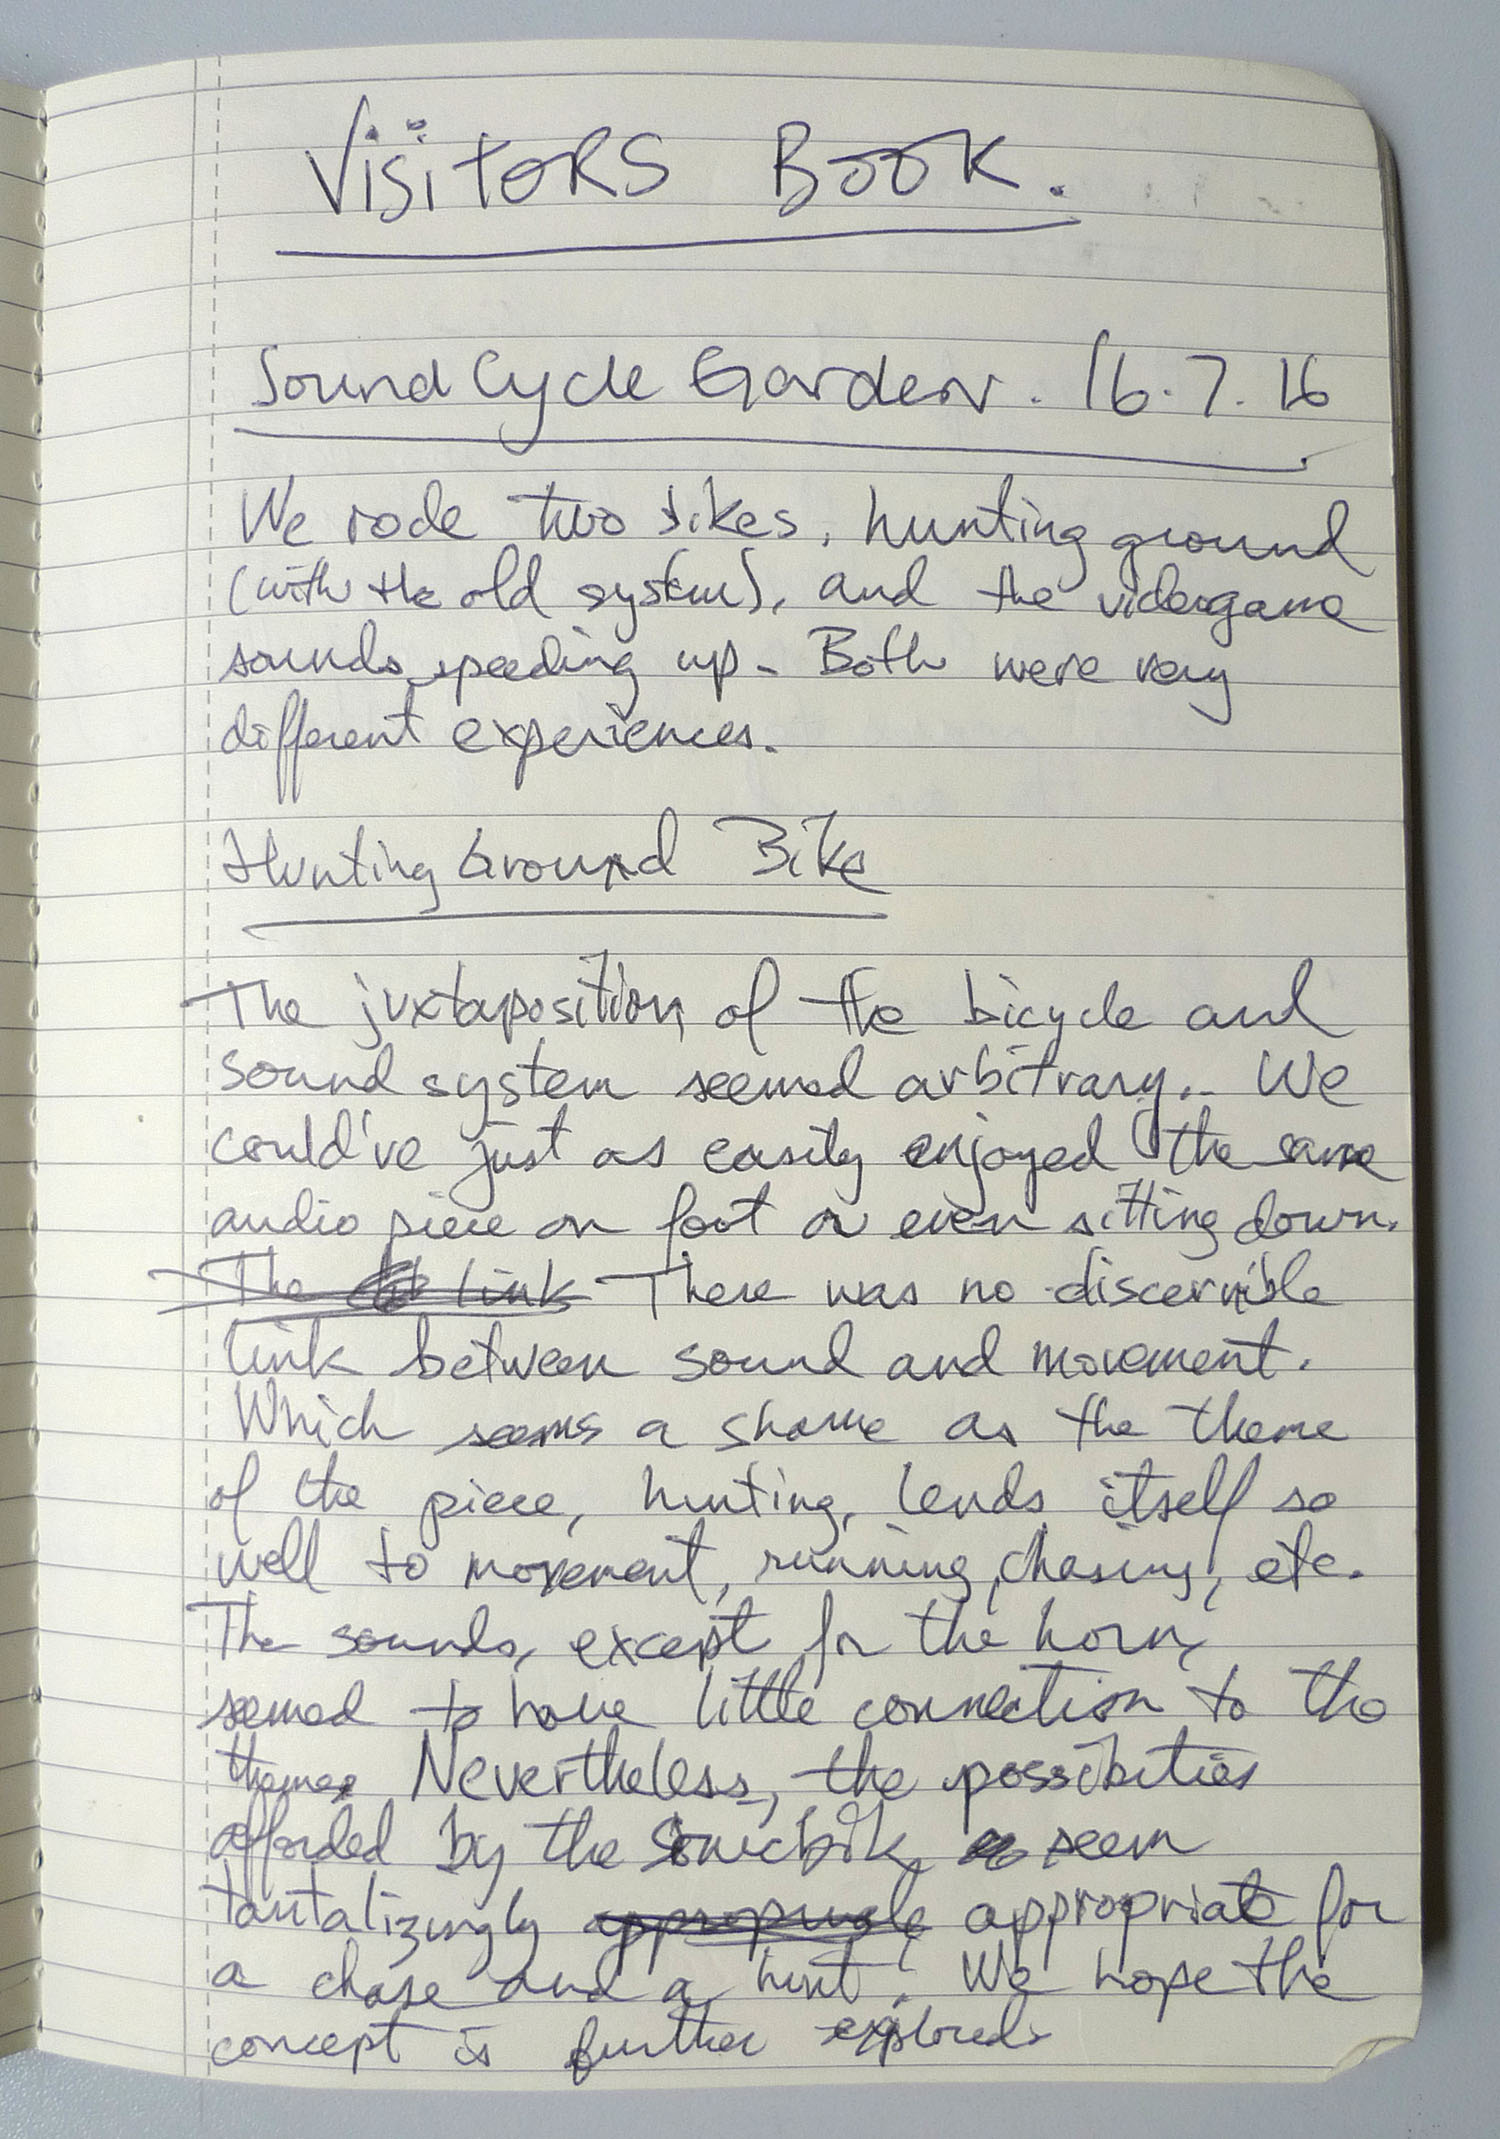 Visitors Book.
Sound Cycle Garden. 16.7.16
We rode two bikes, hunting ground
(with the old system), and the videogame
sounds speeding up. Both were very
different experiences.
Hunting Ground Bike
The juxtaposition of the bicycle and
sound system seemed arbitrary. We
could've just as easily enjoyed the same
audio piece on foot or even sitting down.
The link There was no discernible
link between sound and movement.
Which seems a shame as the theme
of the piece, hunting, lends itself so
well to movement, running, chasing, etc.
The sounds, except for the horn,
seemed to have little connection to the
theme. Nevertheless, the possibities
afforded by the Sonicbike seem
tantalizingly appropriate appropriate for
a chase and a hunt. We hope the
concept is further explored.